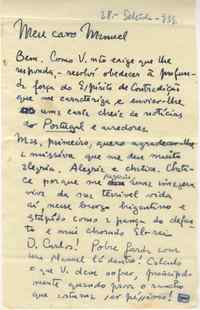 28-Setembro-935
Meu caro Manuel
Bem. Como V. não exige que lhe
responda, - resolvi obedecer à profun-
da força do Espírito de Contradição
que me caracteriza e enviar-lhe
uma carta cheia de notícias
do Portugal e arredores
Mas, primeiro, quero agradecer-lhe
a missiva que me deu muita
alegria. Alegria e
porque me uma imagem
viva da sua terrível vida
aí, nesse burgo bragantino e
estúpido como a pança do defun-
to e mui chorado El-rei
D. Carlos! Pobre farda com
um Manuel lá dentro! Calculo
o que V. deve sofrer, principal-
mente quando prova o rancho
que costuma ser péssimo!